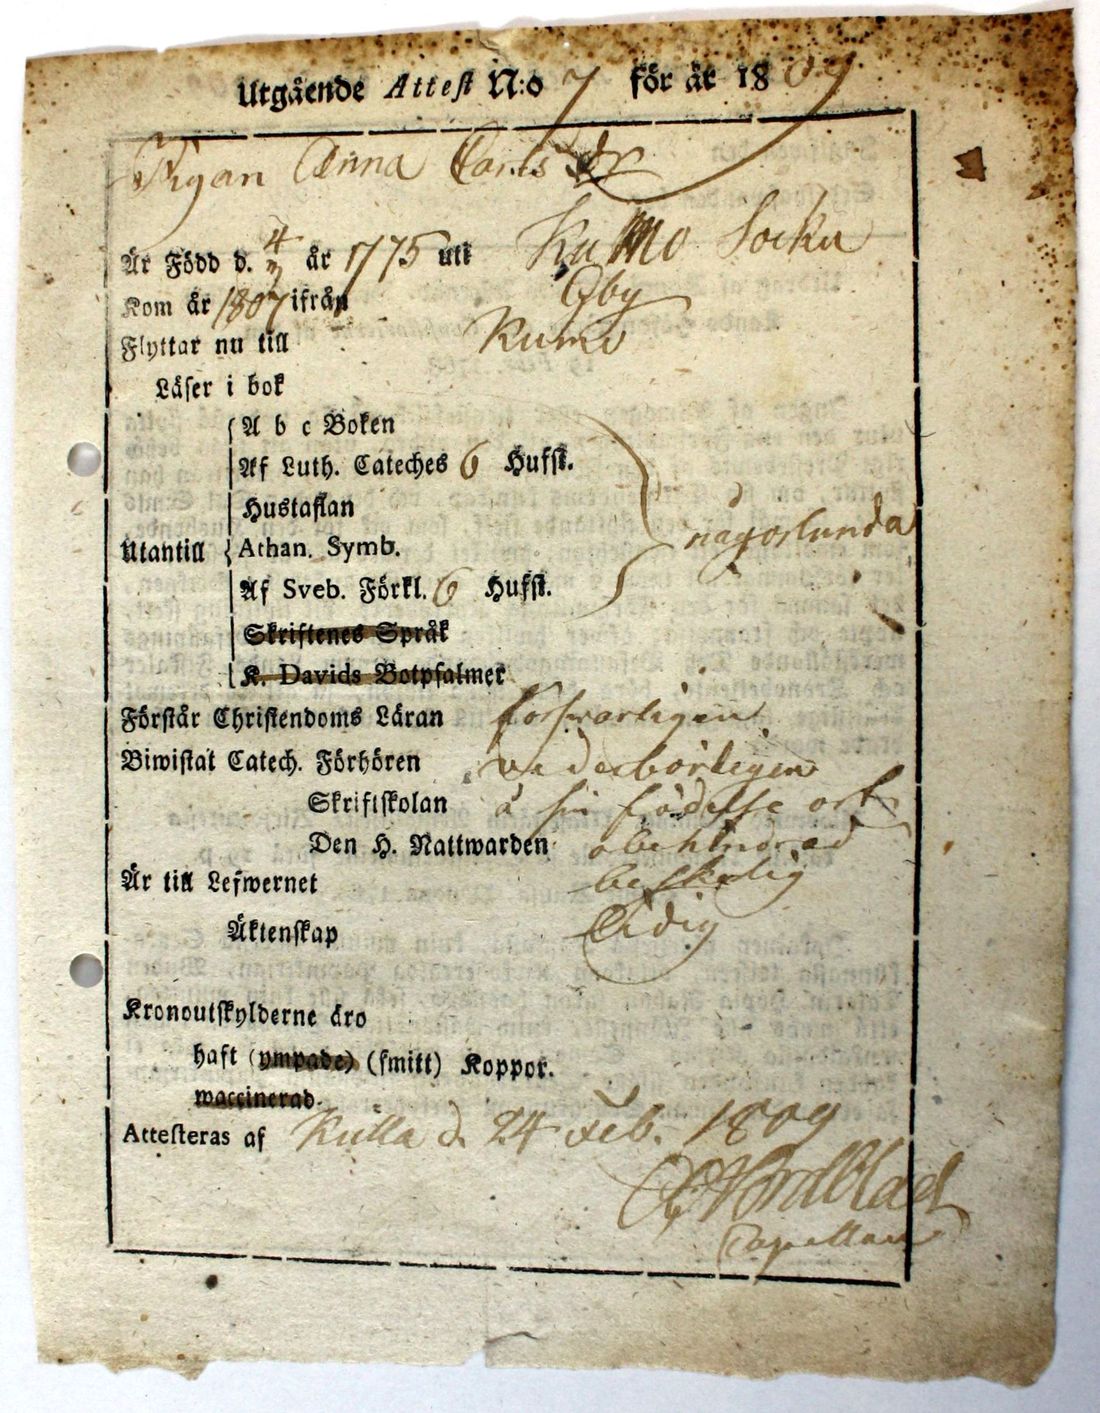 Utgående Attest N:o 7 för år 1809
Pigan Anna Carls dr
Är Född d. 4/7 år 1775 uti Kumo Sokn
Kom år 1807 ifrån Åby
Flyttar nu till Kumo
Läser i bok
A b c Boken
Af Luth. Cateches 6 Hufst.
Hustaflan
Utantill Athan. Symb. någorlunda
Af Sveb. Förkl. 6 Hufst.
Skriftenes Språk
K. Davids Botpsalmer
Förstår Christendoms Läran forsvarligen
Biwistat Catech. Förhören vederbörligen
Skriftskolan å sin födelse ort
Den H. Nattwarden obehindrad
Är till Lefwernet beskelig
Äktenskap Ledig
Kronoutskylderne äro
haft (ympade) (smitt) Koppor.
waccinerad
Attesteras af Kulla d. 24 Feb. 1809
Nordblad
Capellan